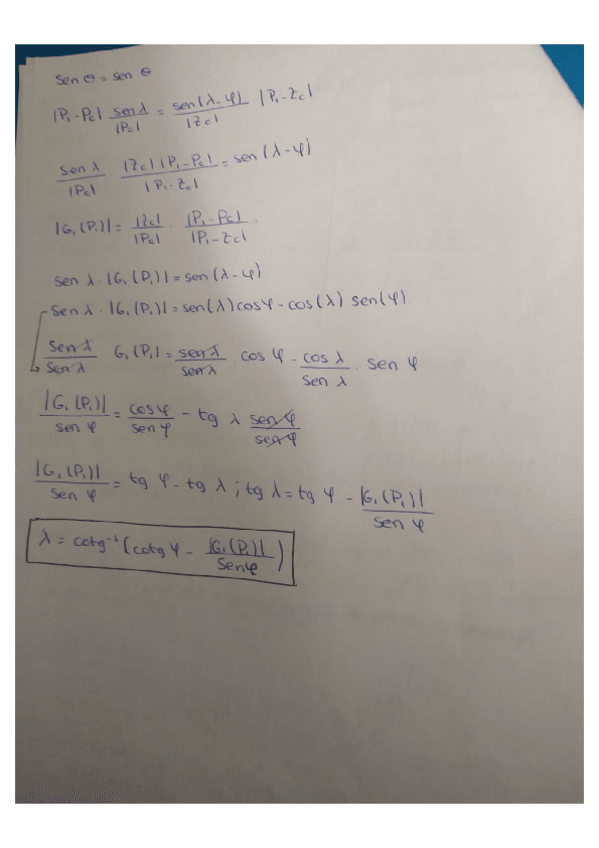 sen θ = sen θ
|P₁-Pc| sen λ / |Pc| = sen(λ-φ) / |Zc| |P₁-Zc|
sen λ / |Pc| · |Zc| |P₁-Pc| / |P₁-Zc| = sen (λ-φ)
|G₁(P₁)| = |Zc| / |Pc| · |P₁-Pc| / |P₁-Zc|
sen λ · |G₁(P₁)| = sen (λ-φ)
sen λ · |G₁(P₁)| = sen(λ)cosφ - cos(λ) sen(φ)
sen λ / sen λ G₁(P₁) = sen λ / sen λ cos φ - cos λ / sen λ · sen φ
|G₁(P₁)| / sen φ = cos φ / sen φ - tg λ sen φ / sen φ
|G₁(P₁)| / sen φ = tg φ - tg λ ; tg λ = tg φ - |G₁(P₁)| / sen φ
λ = cotg⁻¹ (cotg φ - |G₁(P₁)| / sen φ)